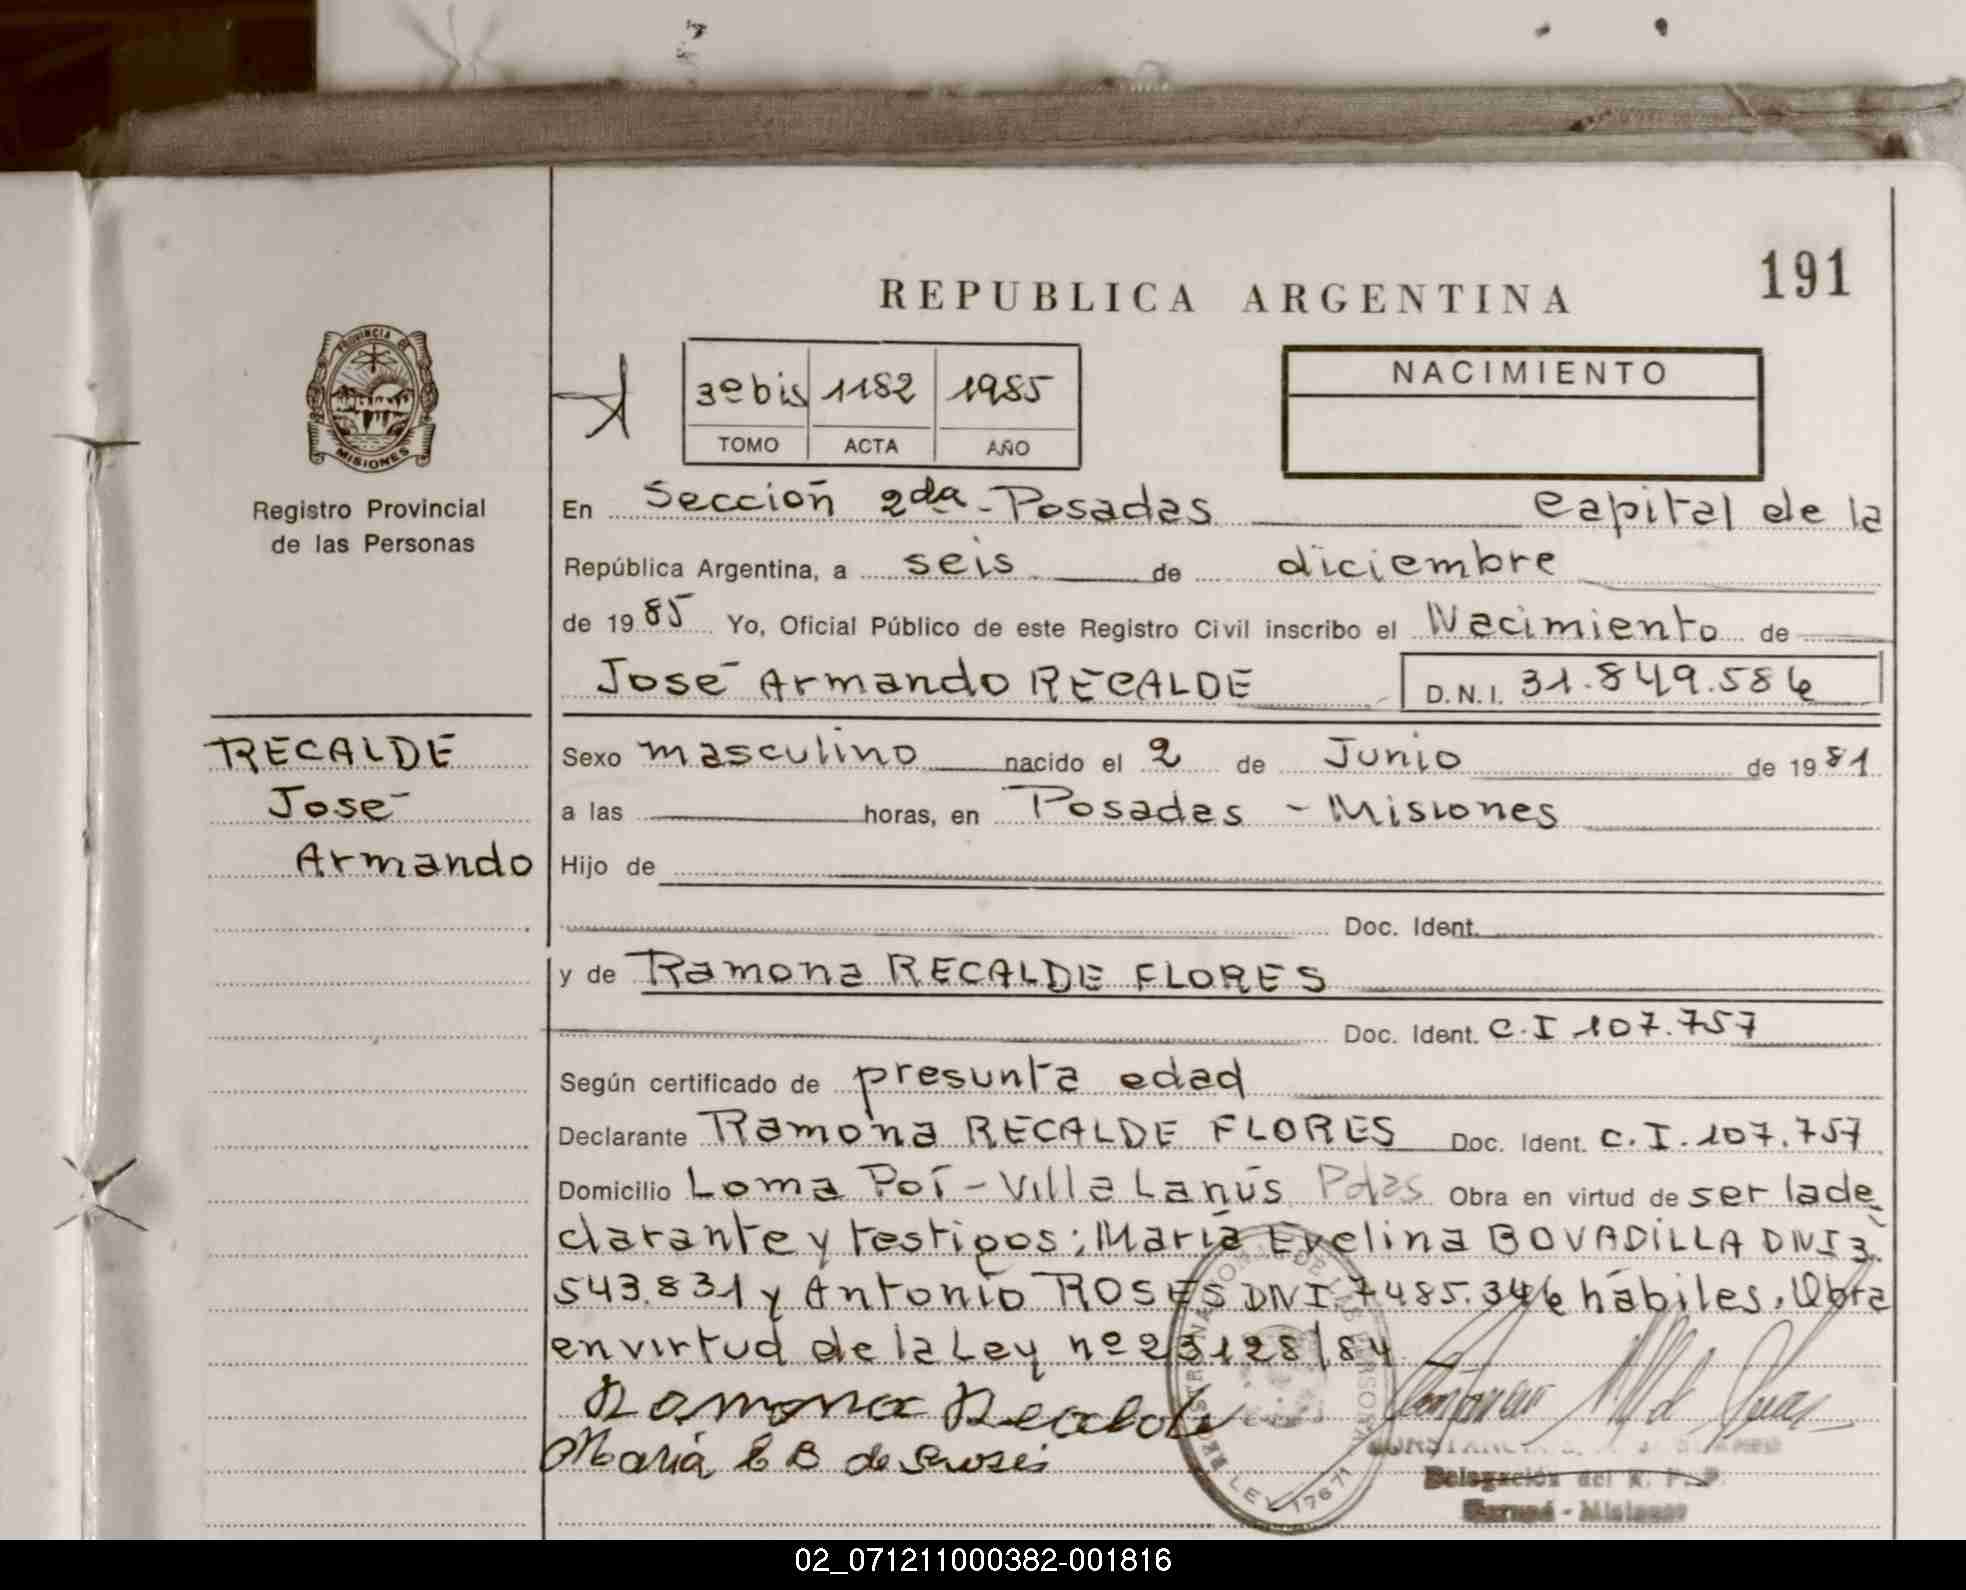 191
REPUBLICA ARGENTINA
PROVINCIA DE
MISIONES
3º bis 1182 1985
TOMO ACTA AÑO
NACIMIENTO
Registro Provincial
de las Personas
En Sección 2da - Posadas Capital de la
República Argentina, a seis de diciembre
de 1985 Yo, Oficial Público de este Registro Civil inscribo el Nacimiento de
José Armando RECALDE D.N.I. 31.849.586
RECALDE
José
Armando
Sexo masculino nacido el 2 de Junio de 1981
a las horas, en Posadas - Misiones
Hijo de
Doc. Ident.
y de Ramona RECALDE FLORES
Doc. Ident. C.I 107.757
Según certificado de presunta edad
Declarante Ramona RECALDE FLORES Doc. Ident. C.I. 107.757
Domicilio Loma Poí - Villa Lanús Pdas Obra en virtud de ser la de
clarante y testigos; María Evelina BOVADILLA DNI 3.
543.831 y Antonio ROSES DNI 7485.346 hábiles. Obra
en virtud de la Ley nº 23128/84
Ramona Recalde
María E B de Roses
LEY 17671
Delegación del R. P. P.
Garupá - Misiones
02_071211000382-001816